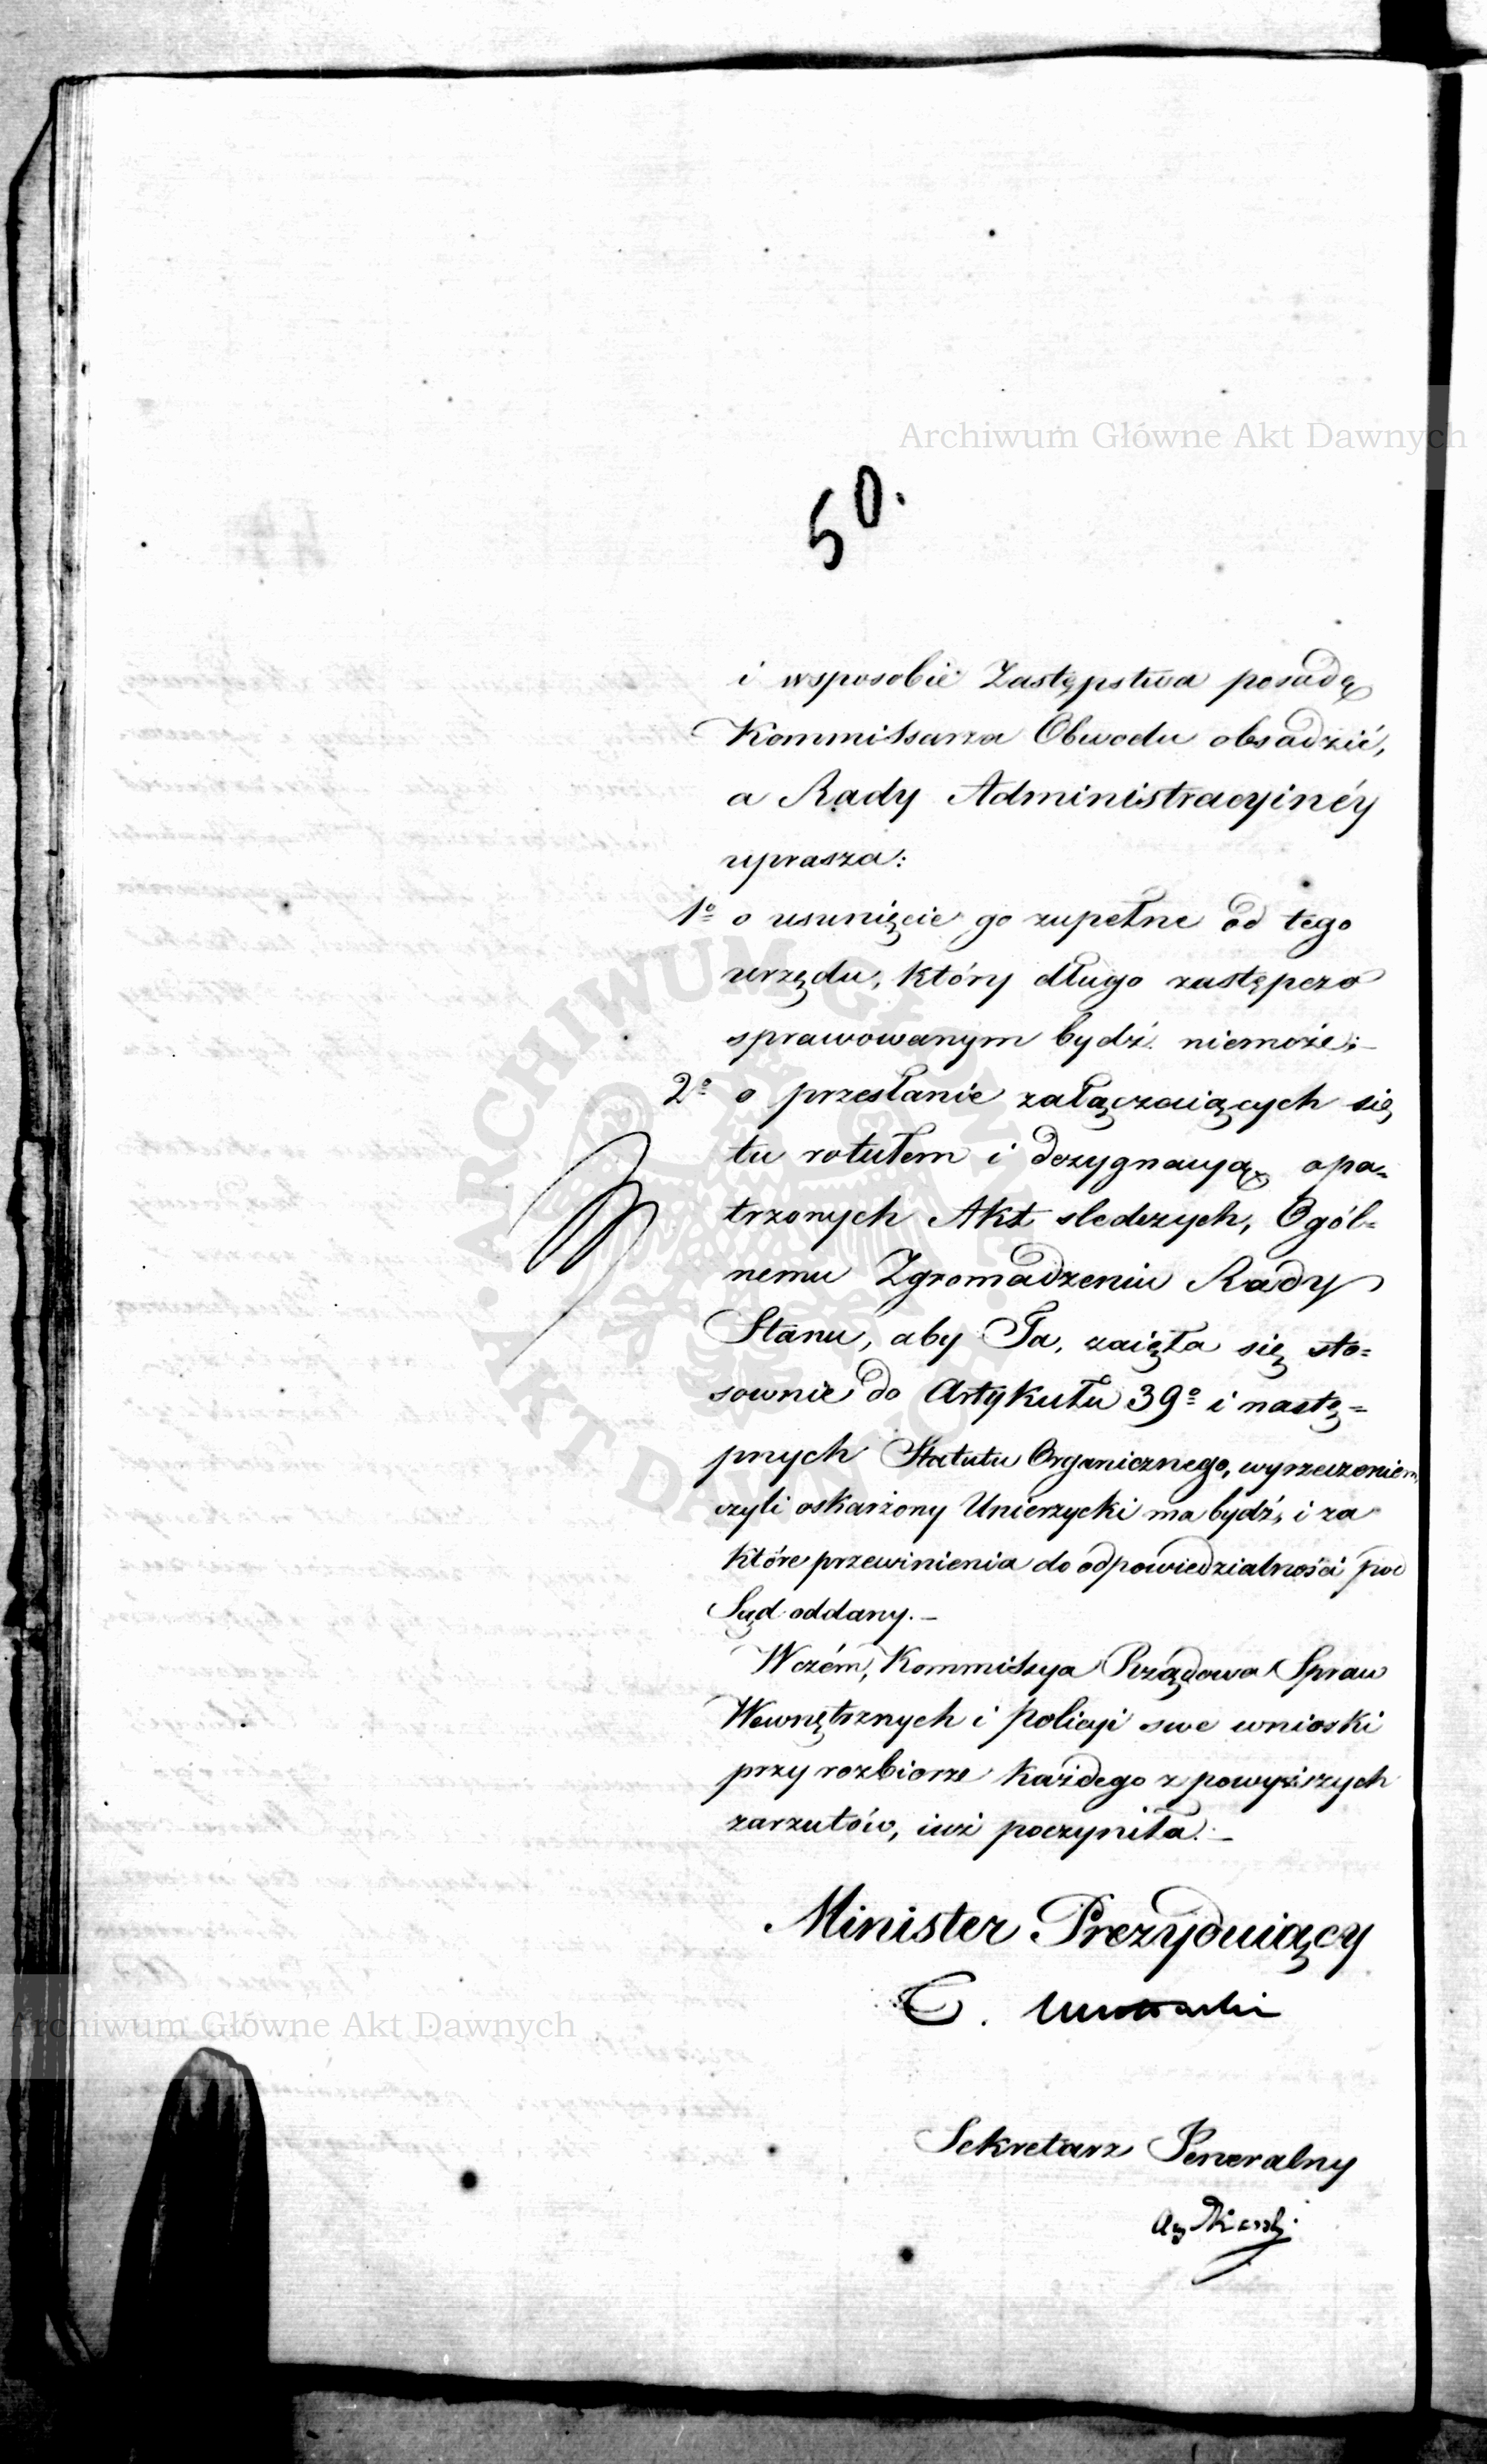 Archiwum Główne Akt Dawnych
50.
i wsposobie Zastępstwa posadę
Kommissarza Obwodu obsadzić,
a Rady Administracyinéy
uprasza:
1º o usunięcie go zupełne od tego
urzędu, który długo zastępczo
sprawowanym bydź niemoże;_
2º o przesłanie załączaiących się
tu rotułem i dezygnacyą opa=
trzonych Akt sledczych, Ogól=
nemu Zgromadzeniu Rady
Stanu, aby Ta, zaięła się sto=
sownie do Artykułu 39º i nastę=
pnych Statutu Organicznego, wyrzeczeniem,
czyli oskarżony Unierzycki ma bydź, i za
które przewinienia do odpowiedzialności pod
Sąd oddany._
W czém, Kommissya Rządowa Spraw
Wewnętrznych i Policyi swe wnioski
przy rozbiorze każdego z powyższych
zarzutów, iuż poczyniła._
Minister Prezyduiący
Archiwum Główne Akt Dawnych
Sekretarz Jeneralny
ARCHIWUM GŁÓWNE AKT DAWNYCH